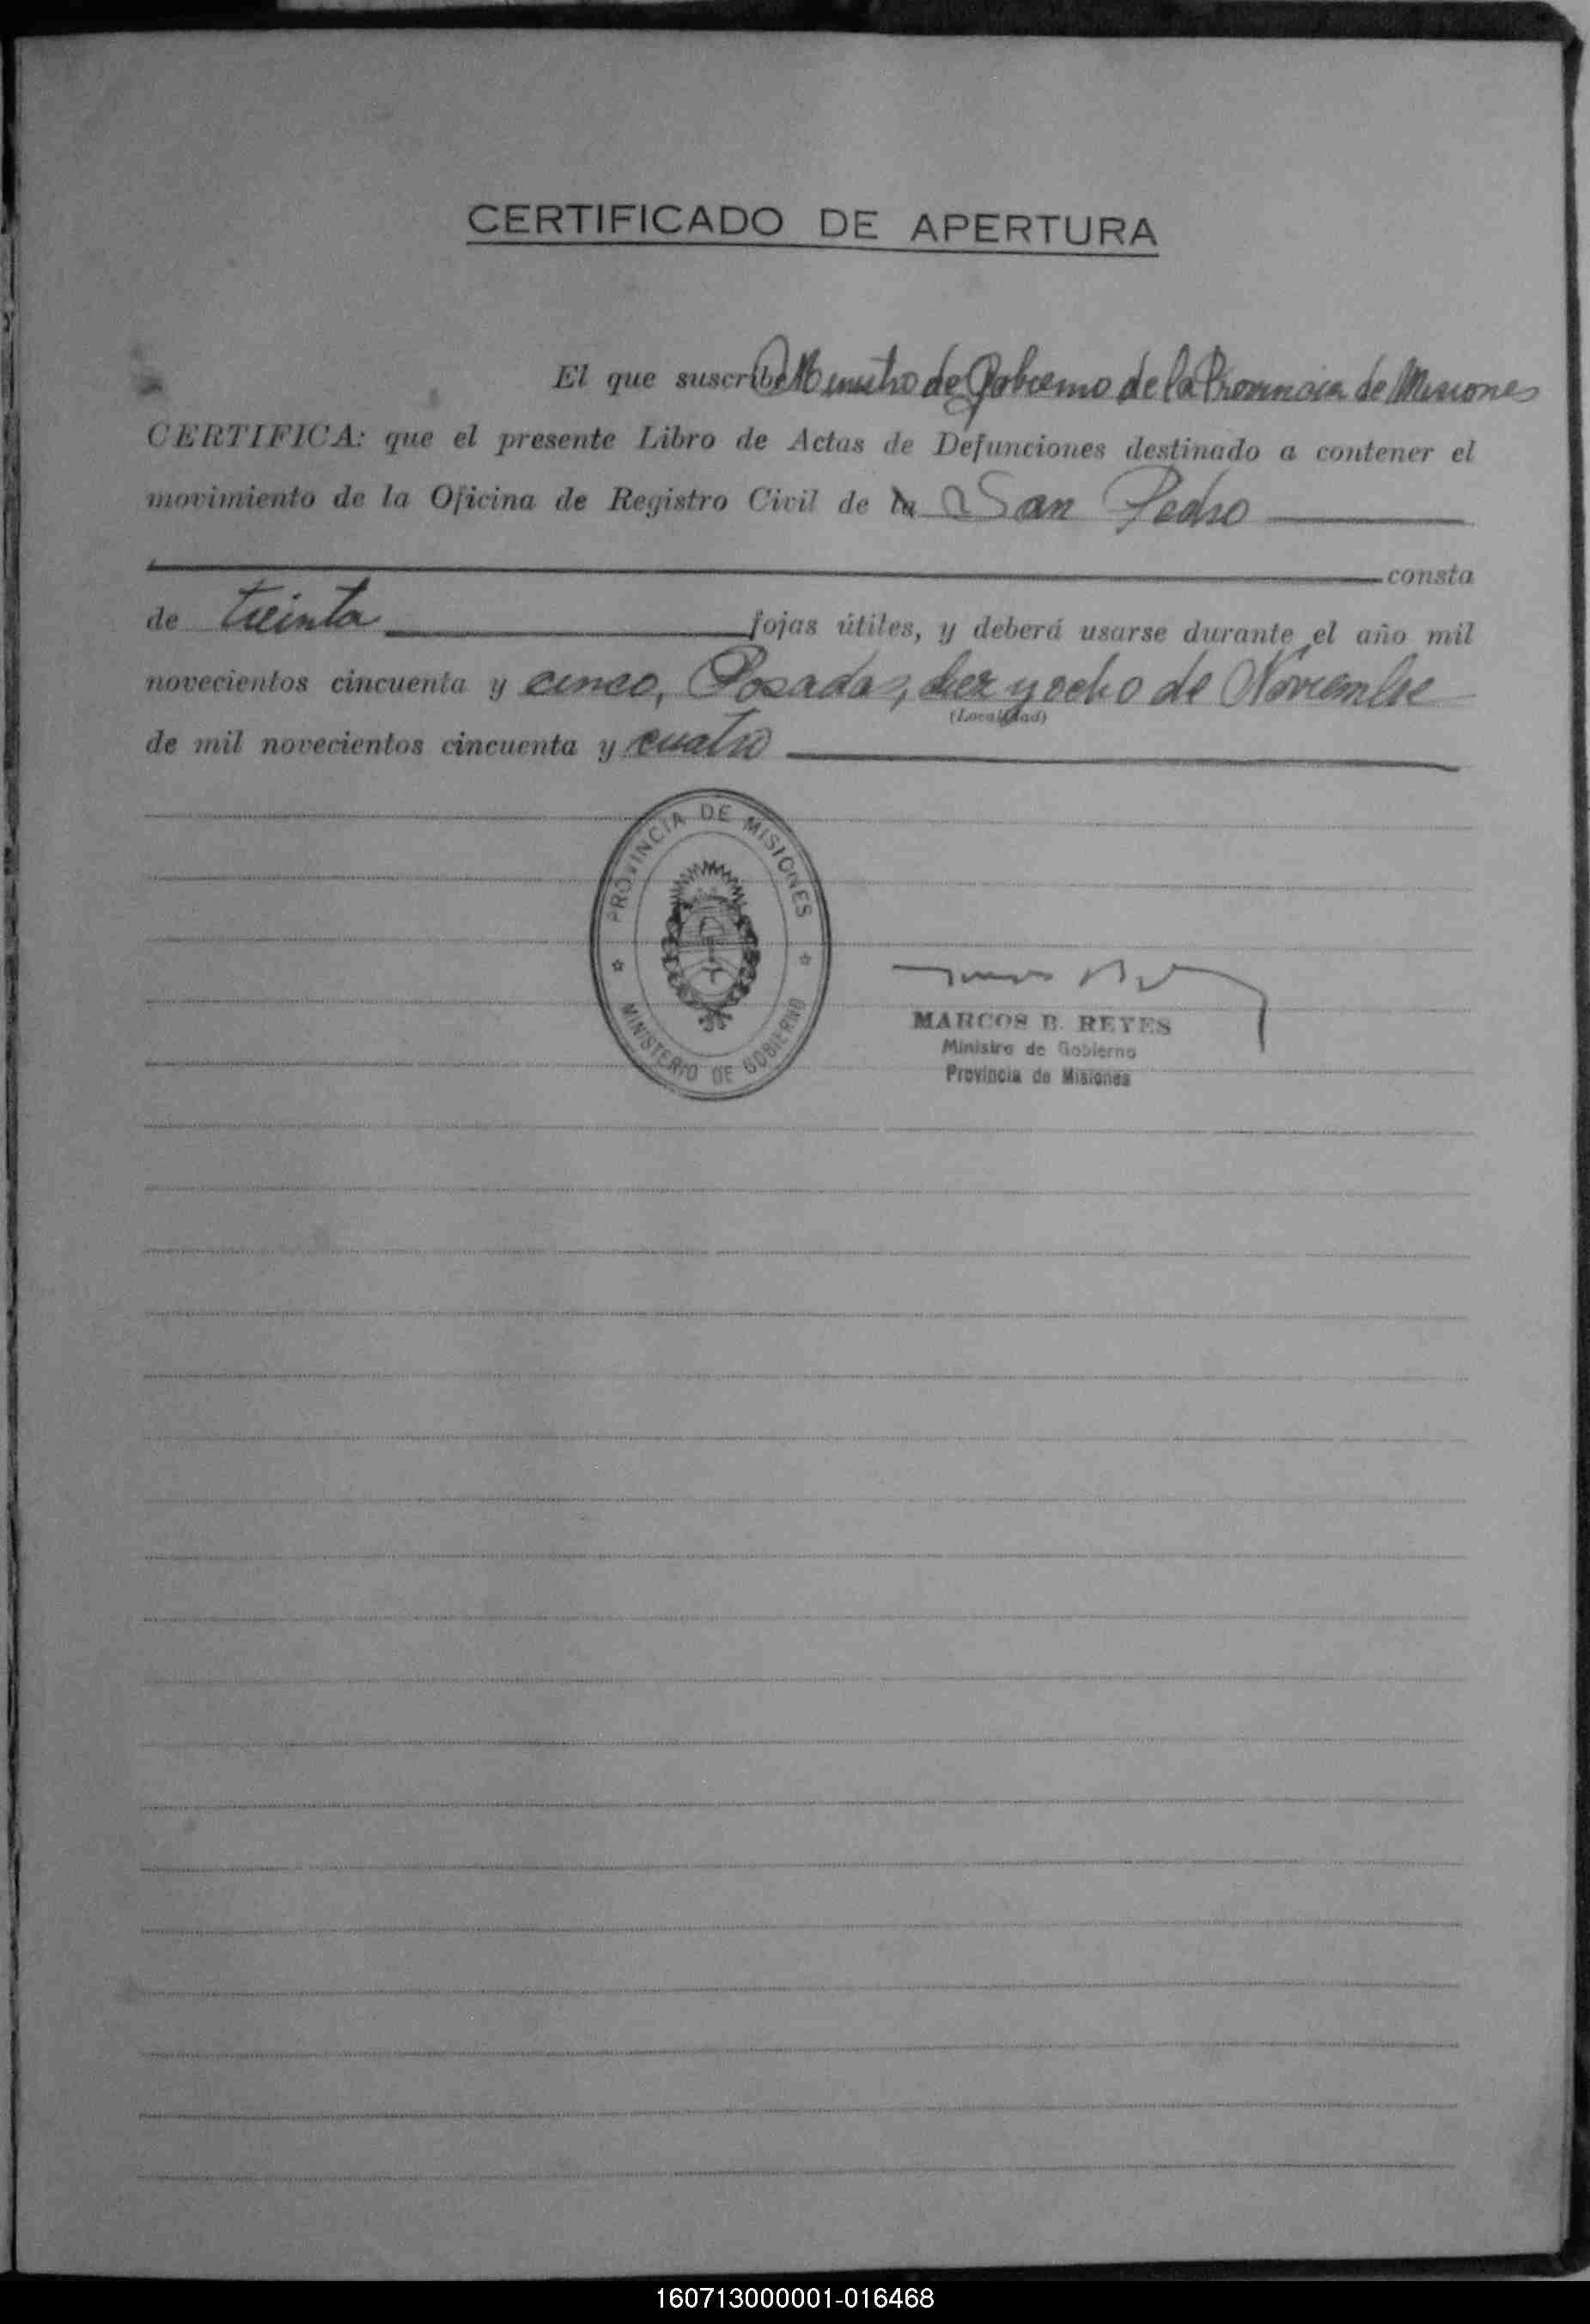 CERTIFICADO DE APERTURA
El que suscribe Ministro de Gobierno de la Provincia de Misiones
CERTIFICA: que el presente Libro de Actas de Defunciones destinado a contener el
movimiento de la Oficina de Registro Civil de la San Pedro
consta
de treinta fojas útiles, y deberá usarse durante el año mil
novecientos cincuenta y cinco, Posadas, diez y ocho de Noviembre
(Localidad)
de mil novecientos cincuenta y cuatro
PROVINCIA DE MISIONES
MINISTERIO DE GOBIERNO
MARCOS B. REYES
Ministro de Gobierno
Provincia de Misiones
160713000001-016468